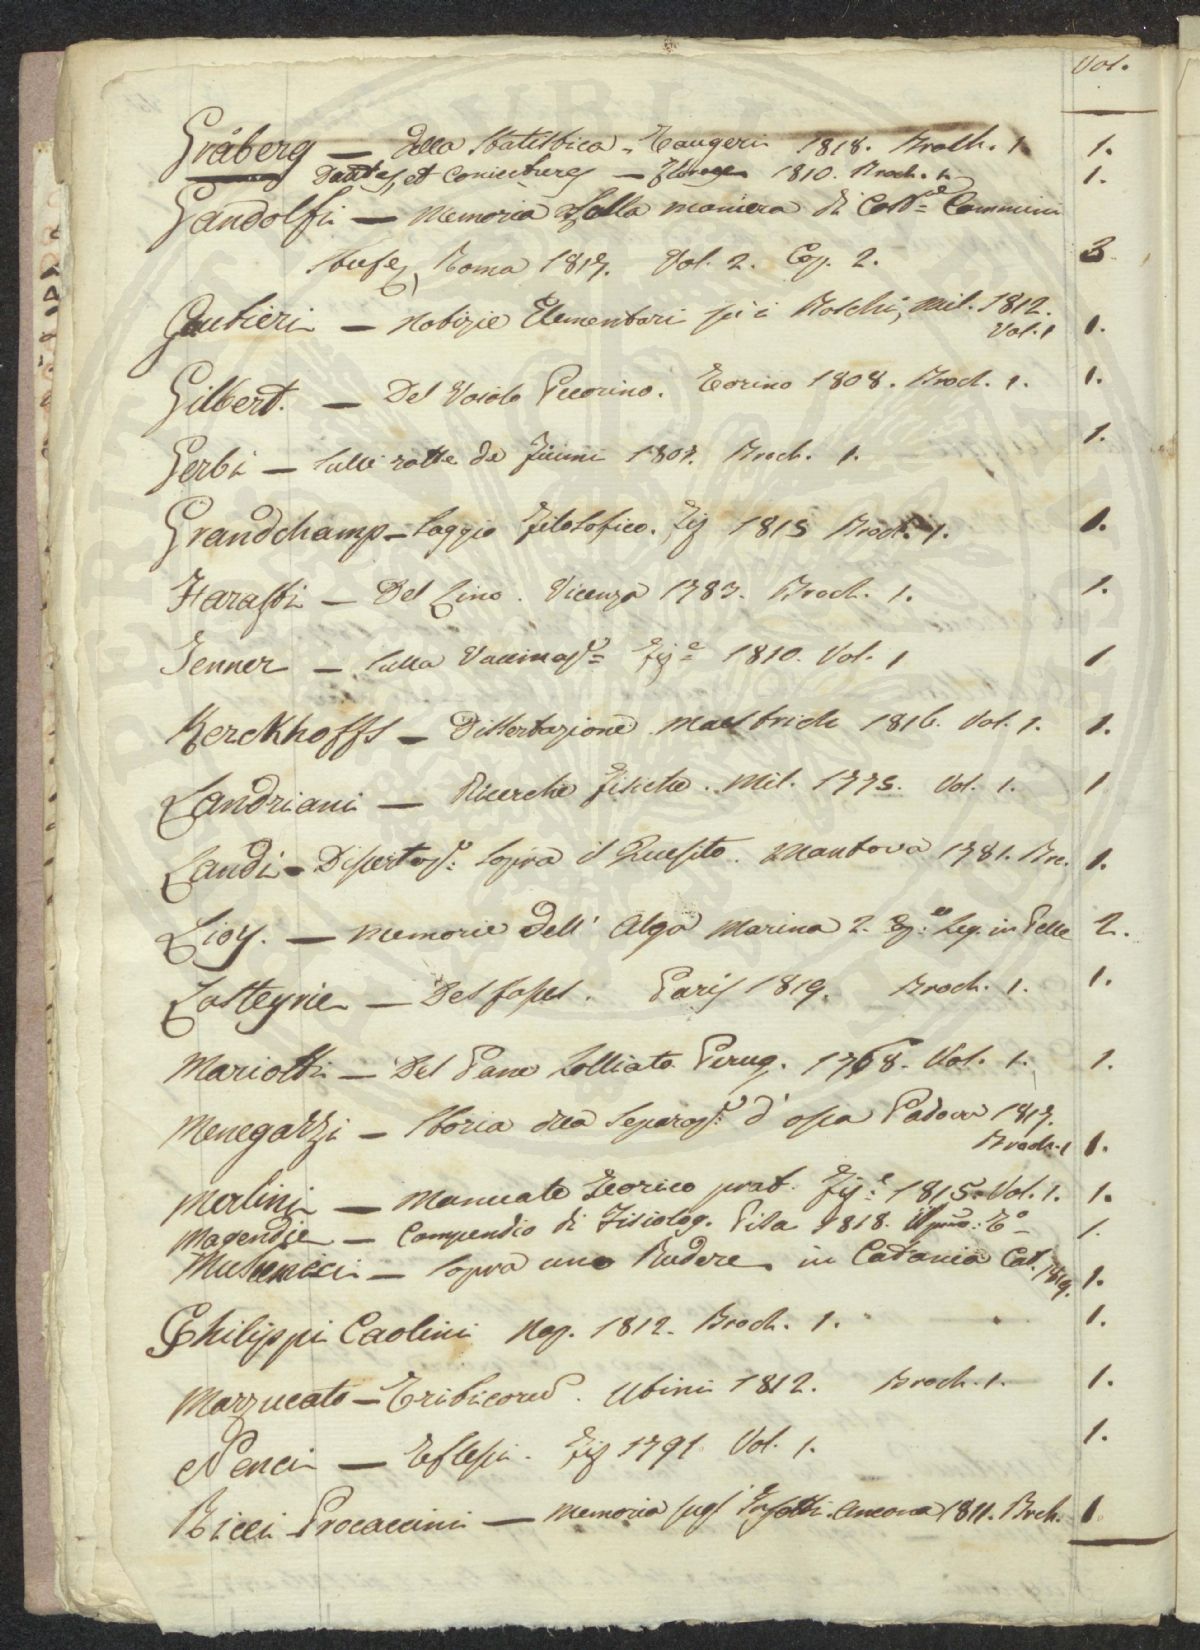 Vol.
Gråberg — della Statistica. Tangeri 1818. Broch. 1. 1.
Doutes, et Conjectures — 1810. Broch. 1. 1.
Gandolfi — Memoria Sulla maniera di Comuni
Stufe, Roma 1817. Vol. 2. Cop. 2. 3.
Gautieri — Notizie Elementari su i Boschi, Mil. 1812.
Vol. 1 1.
Gilbert. — Del Vaiolo Pecorino. Torino 1808. Broch. 1. 1.
Gerbi — Sulle rotte de Fiumi 1807. Broch. 1. 1.
Grandchamp — Saggio Filosofico. Fiz 1815 Broch. 1. 1.
Harasti — Del Lino. Vicenza 1783. Broch. 1. 1.
Jenner — Sulla 1810. Vol. 1 1
Kerckhoffs — Dissertazione Maestrich 1816. Vol. 1. 1.
Landriani — Ricerche Fisiche. Mil. 1775. Vol. 1. 1
Landi — Dissertaz.e Sopra il Quesito. Mantova 1781. Bro. 1.
Lioy. — Memorie Dell' Alga Marina 2. Leg. in Pelle 2.
Lasteyrie — Des fosses. Paris 1819. Broch. 1. 1.
Mariotti — Del Pane Lolliato Perug. 1768. Vol. 1. 1.
Menegazzi — Storia della Separaz.e d' ossa Padova 1817.
Broch. 1 1.
Merlini — Manuale Teorico prat. 1815. Vol. 1. 1.
Magendie — Compendio di Fisiolog. Pisa 1818. T.o 1.
— Sopra uno Rudere in Catania Cat. 1819. 1.
Philippi Caolini Nap. 1812. Broch. 1. 1.
Mazzucato — Utini 1812. Broch. 1. 1.
Nenci — Riflessi. Fiz 1791. Vol. 1. 1.
Ricci Procaccini — Memoria sugl' Ancona 1811. Brch. 1.